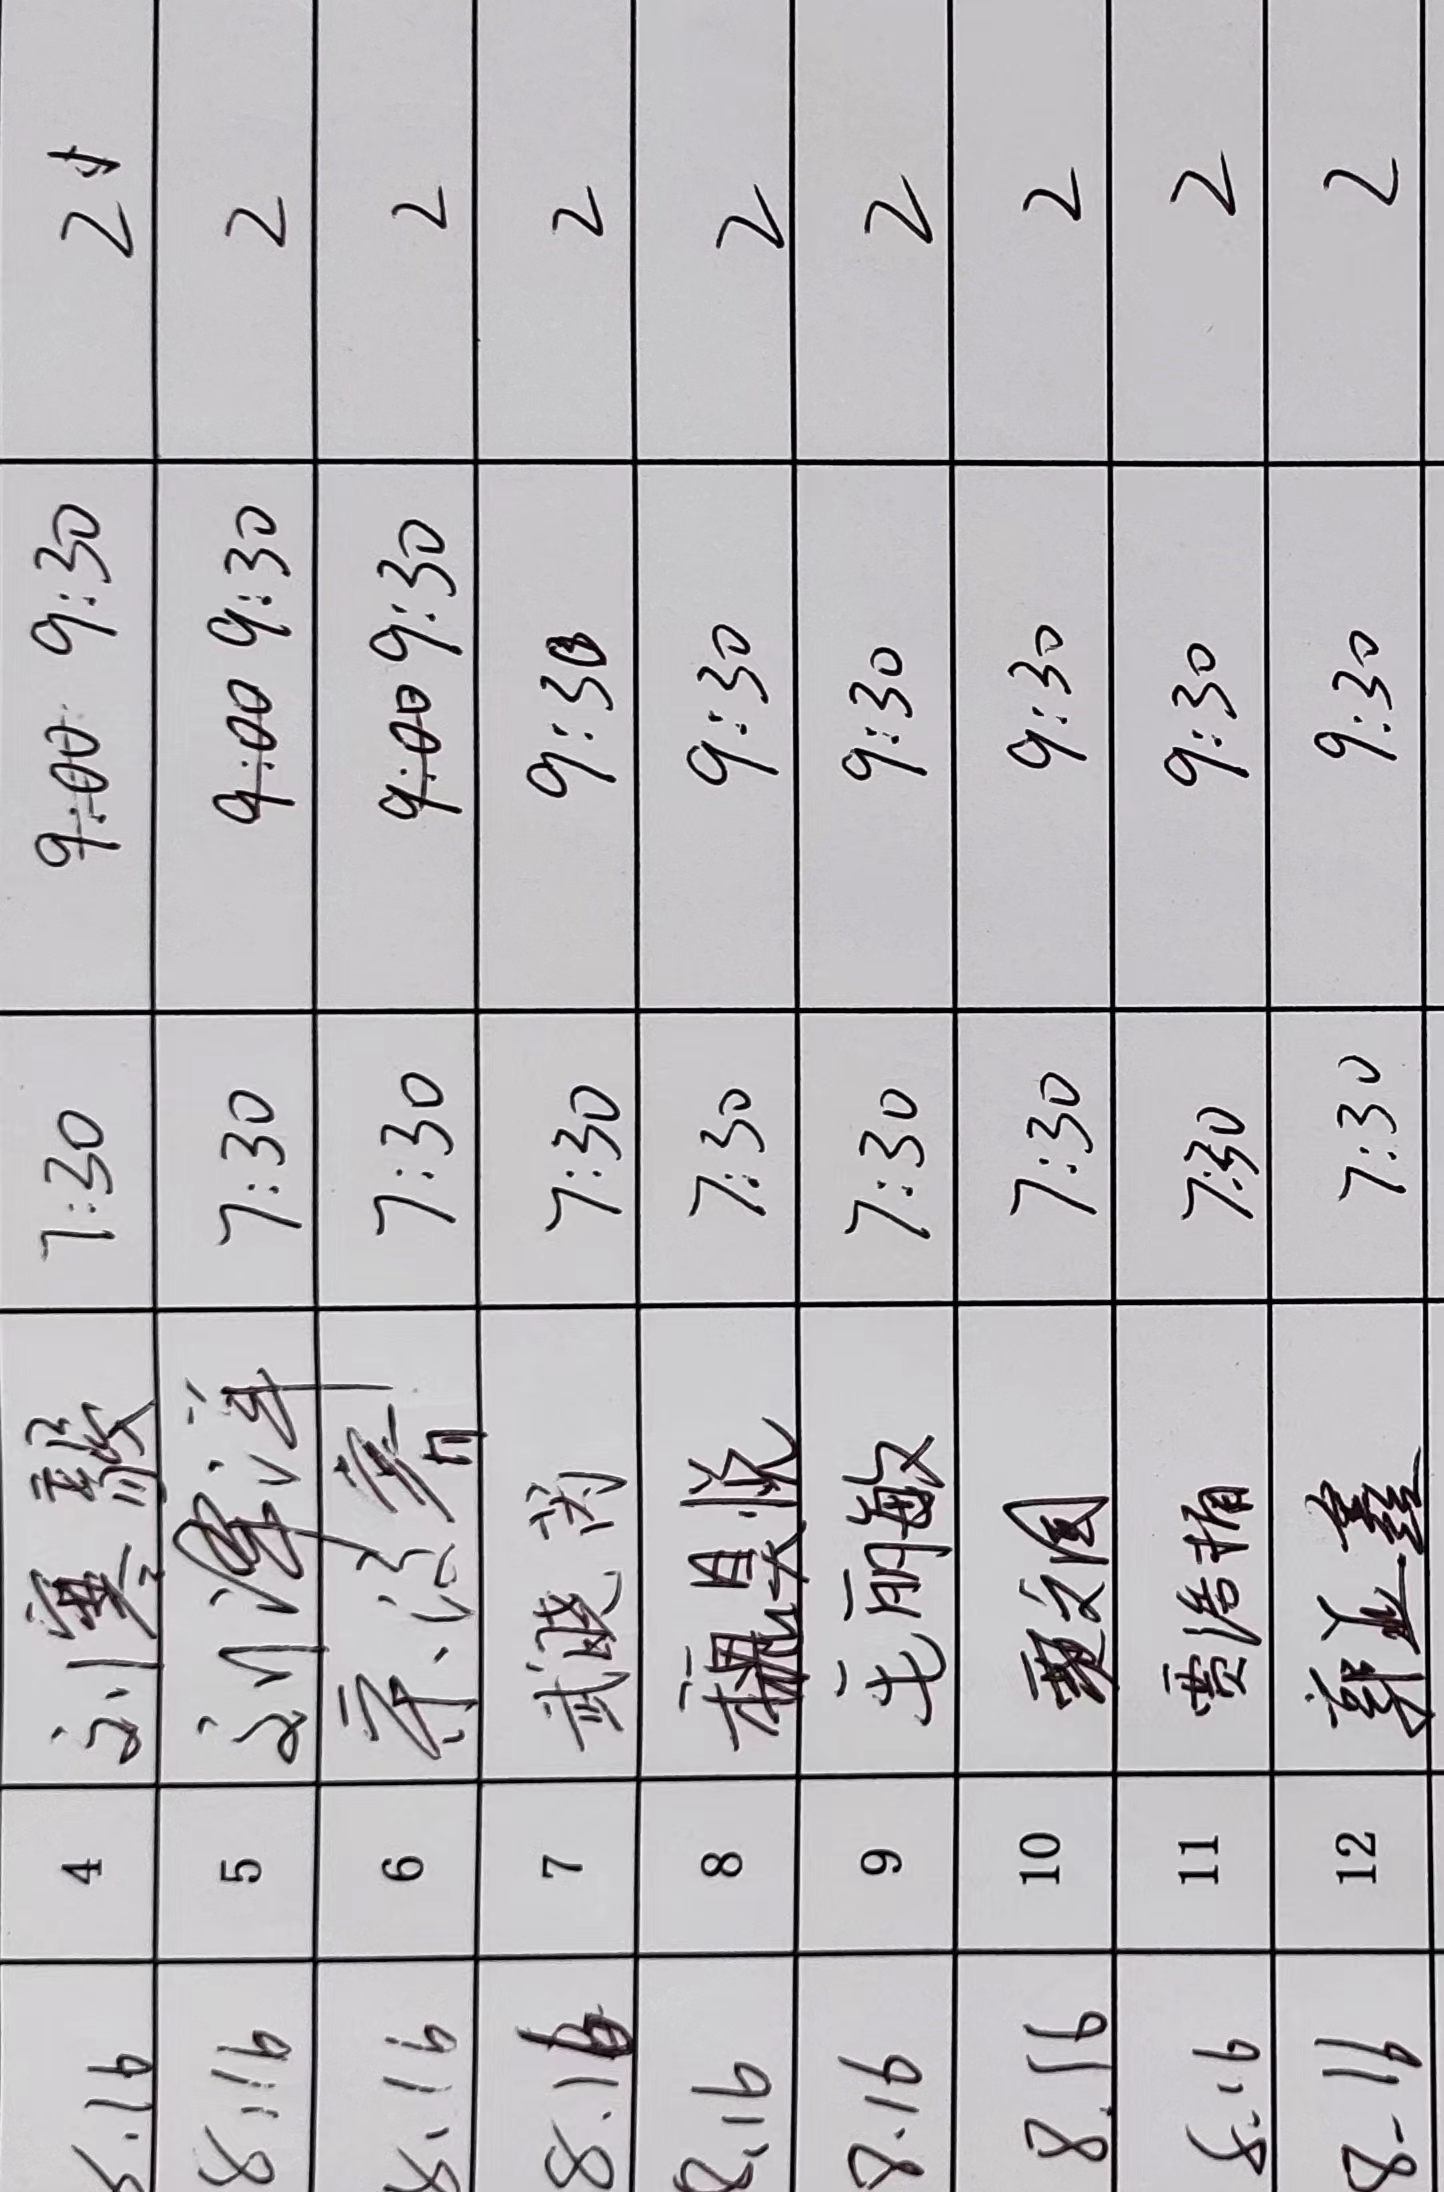 8.16 4 刘 7:30 9:00 9:30 2
8.16 5 刘 7:30 9:00 9:30 2
8.16 6 7:30 9:00 9:30 2
8.16 7 武 7:30 9:30 2
8.16 8 悦 7:30 9:30 2
8.16 9 丽敏 7:30 9:30 2
8.16 10 文 7:30 9:30 2
8.16 11 贾浩楠 7:30 9:30 2
8-16 12 郭孟鑫 7:30 9:30 2